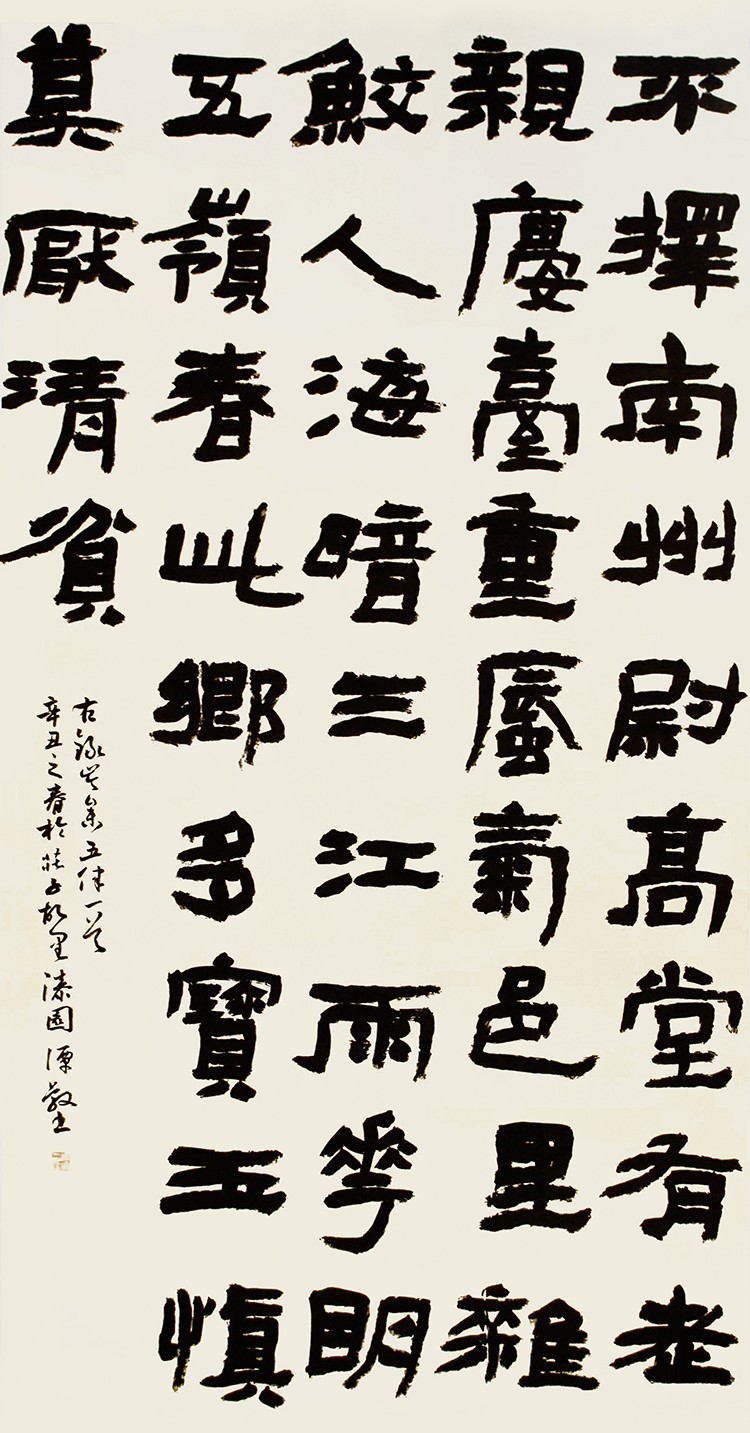 不擇南州尉高堂有老
親廔臺重蜃氣邑里雜
鮫人海暗三江雨花明
五嶺春此鄉多寶玉慎
莫厭清貧
右錄岑參五律一首
辛丑之春於莊子故里漆園